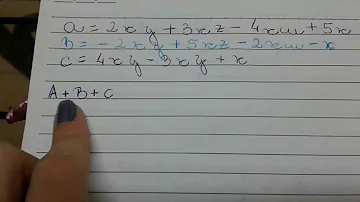 a = 2xy + 3xz - 4xw + 5x
B = -2xy + 5xz - 2xw - x
C = 4xy - 3xy + x
A + B + C